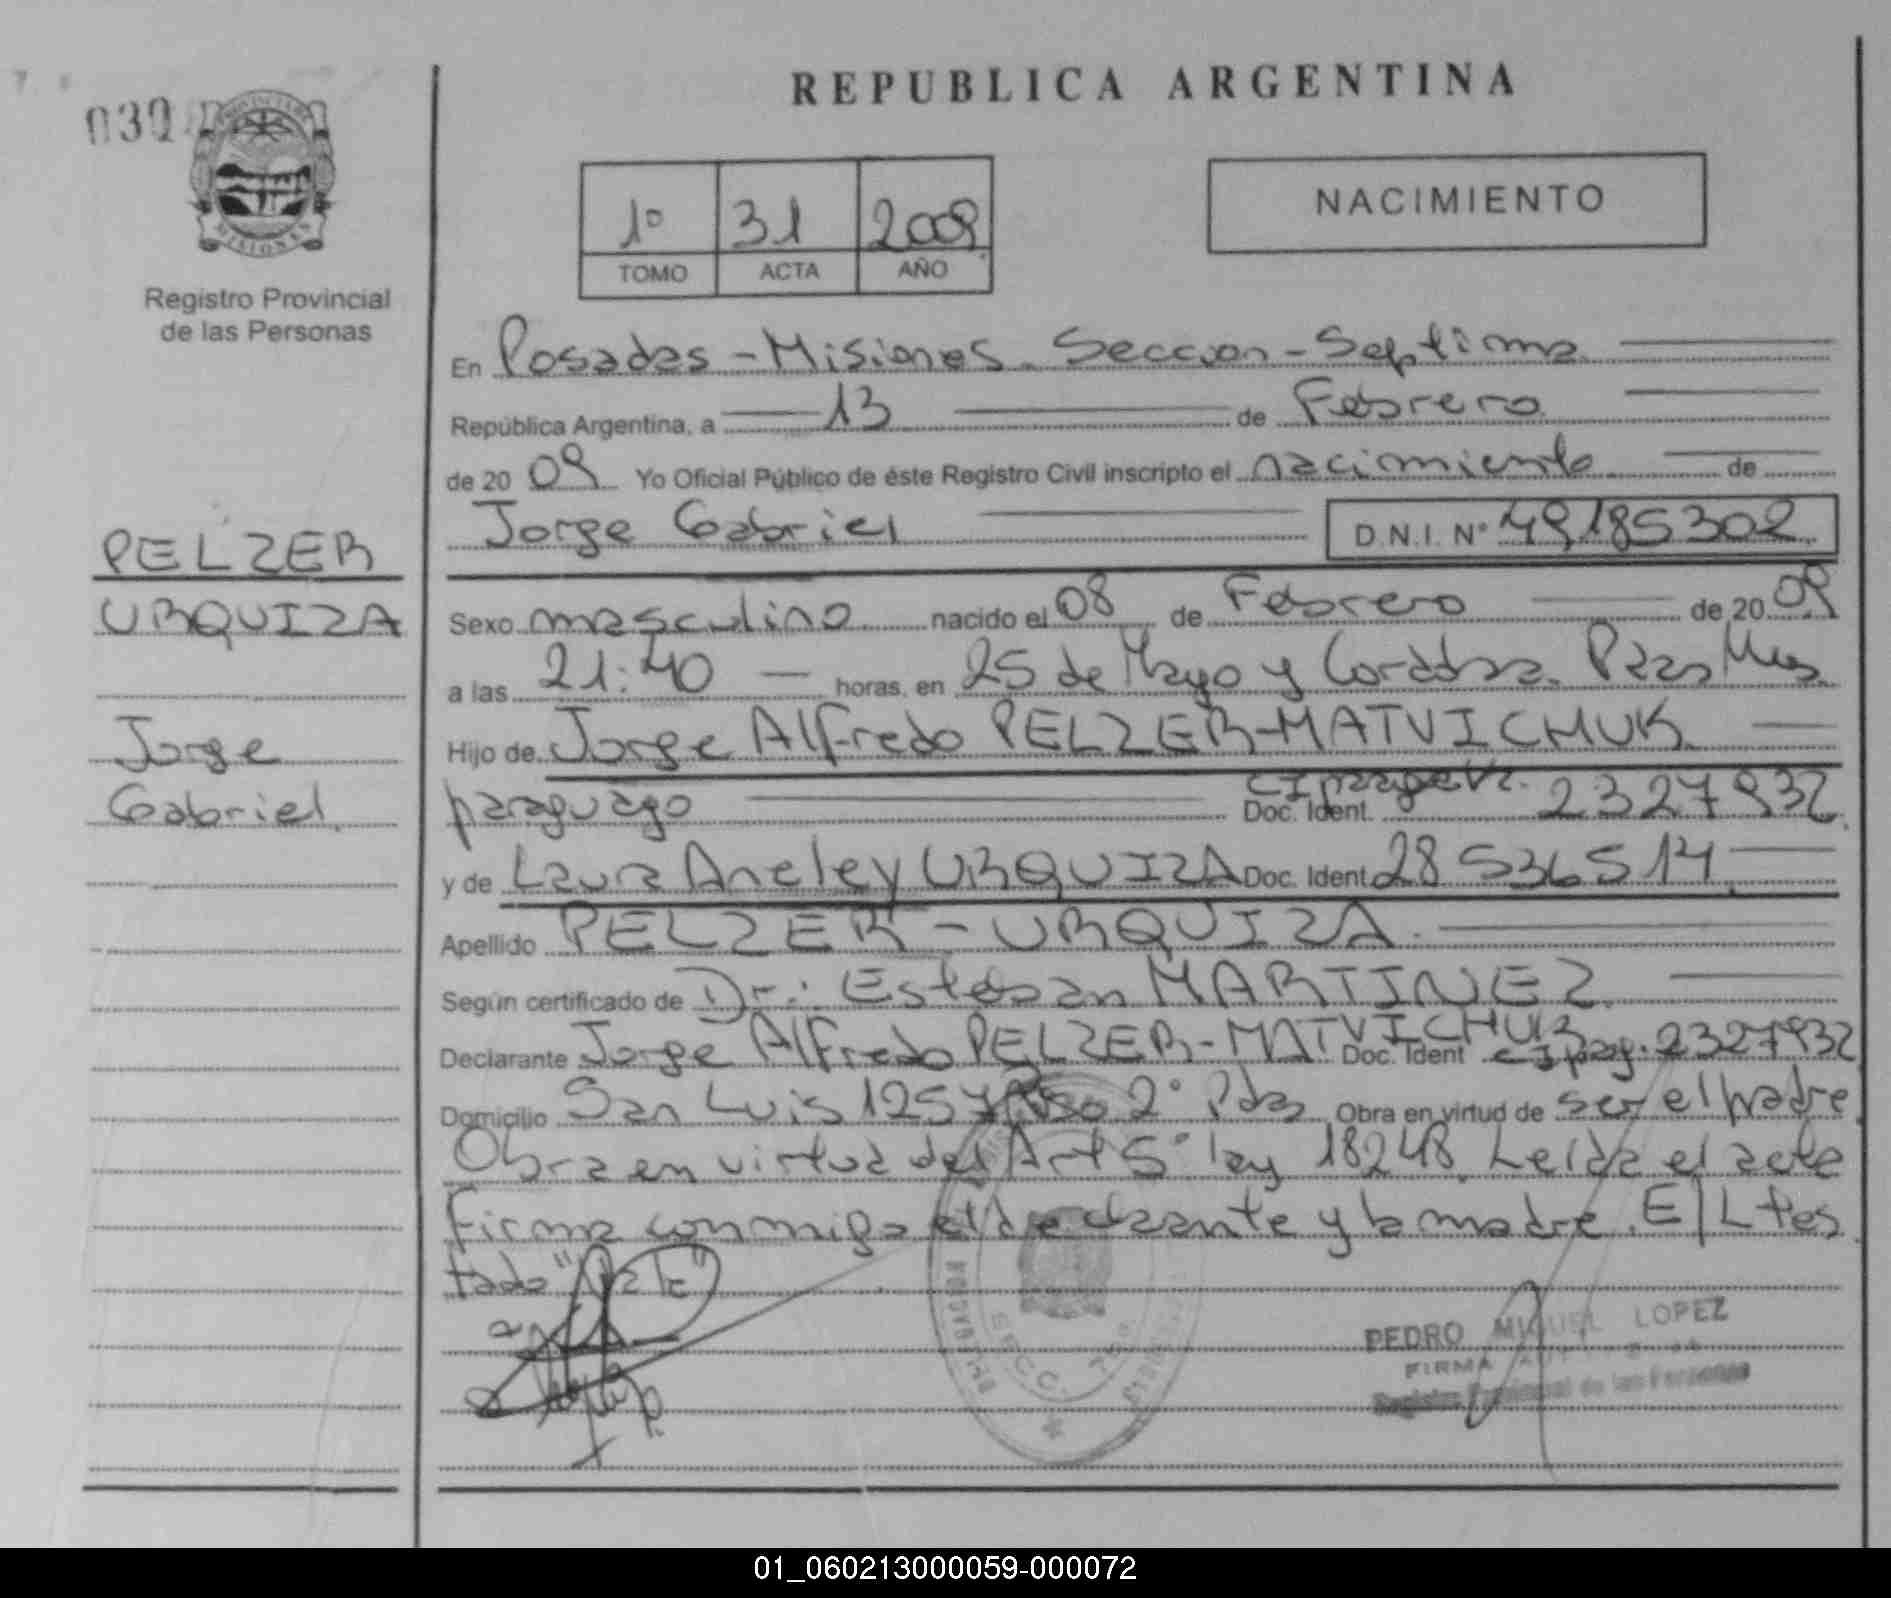 REPUBLICA ARGENTINA
030
MISIONES
Registro Provincial
de las Personas
1º 31 2009
TOMO ACTA AÑO
NACIMIENTO
En Posadas - Misiones. Seccion - Septima
República Argentina, a 13 de Febrero
de 20 09 Yo Oficial Público de éste Registro Civil inscripto el nacimiento de
Jorge Gabriel D.N.I. Nº 49185302
PELZER
URQUIZA
Jorge
Gabriel
Sexo masculino nacido el 08 de Febrero de 20 09
a las 21:40 horas, en 25 de Mayo y Cordoba. Pdas Mnes.
Hijo de Jorge Alfredo PELZER-MATVICHUK
paraguayo Doc. Ident. CI 2327932
y de Laura Aneley URQUIZA Doc. Ident. 28536514
Apellido PELZER - URQUIZA.
Según certificado de Dr.: Esteban MARTINEZ.
Declarante Jorge Alfredo PELZER-MATVICHUK Doc. Ident CI pag. 2327932
Domicilio San Luis 1257 Piso 2º Pdas Obra en virtud de ser el padre
Obra en virtud del Art 5º ley 18248. Leida el acta
firma conmigo el declarante y la madre. E/L tes
tado
SECC. 7ma
PEDRO MIGUEL LOPEZ
FIRMA
Registro Provincial de las Personas
01_060213000059-000072